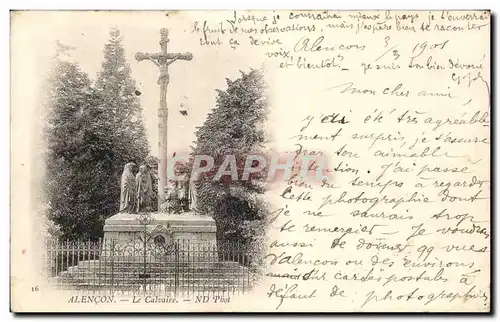 Lorsque je connaîtrai mieux le pays je t'enverrai
le fruit de mes observations, mais j'espère bien te raconter
tout ça de vive
voix
Alençon 3/3 1901
et bientôt. Je suis ton bien dévoué
Mon cher ami,
j'ai été très agréable
ment surpris je t'assure
par ton aimable
attention. J'ai passé
bien du temps à regarder
cette photographie dont
je ne saurais trop
te remercier. Je voudrais
aussi te donner qq vues
d'Alençon ou des environs
mais sur cartes postales à
défaut de photographies
CPARAMA.COM
16
ALENÇON. — Le Calvaire. — ND Phot